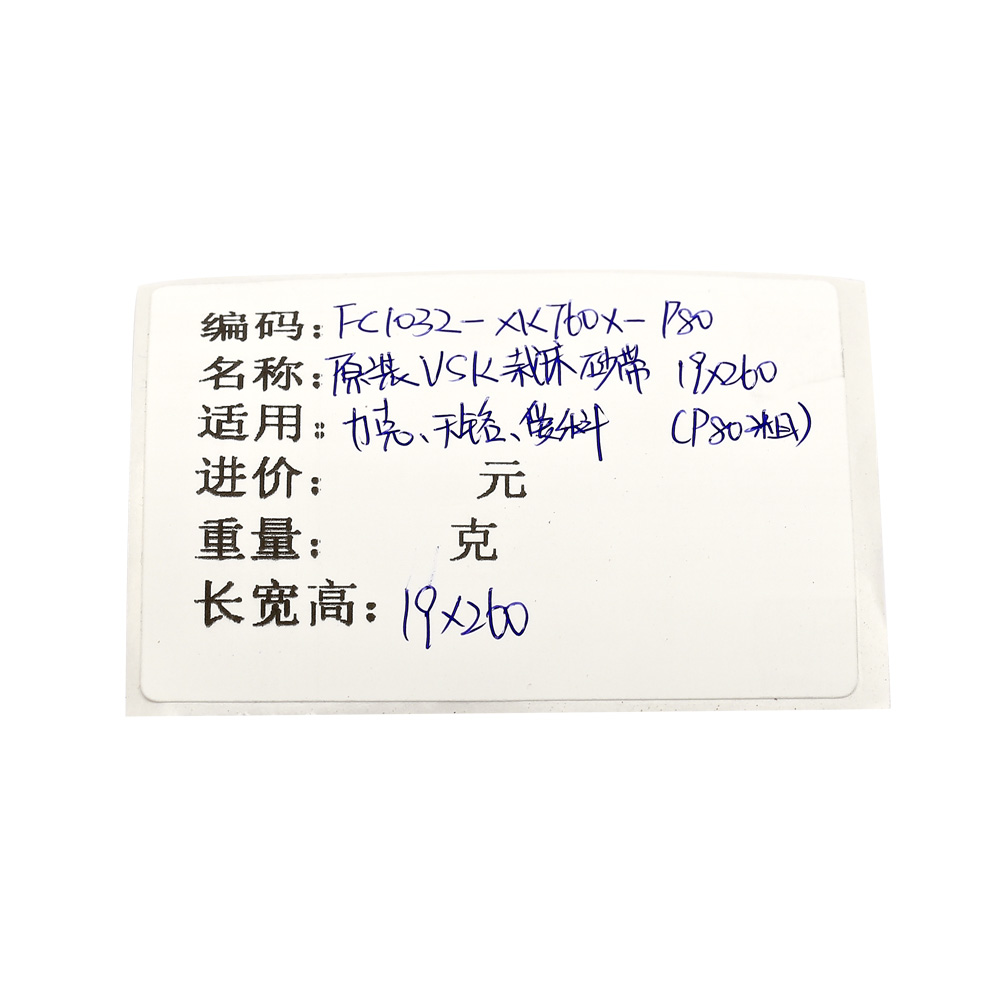 编码：FC1032-XK760X-P80
名称：原装VSK裁床砂带 19x260
适用：力克、天铭、 (P80粗)
进价： 元
重量： 克
长宽高：19x260